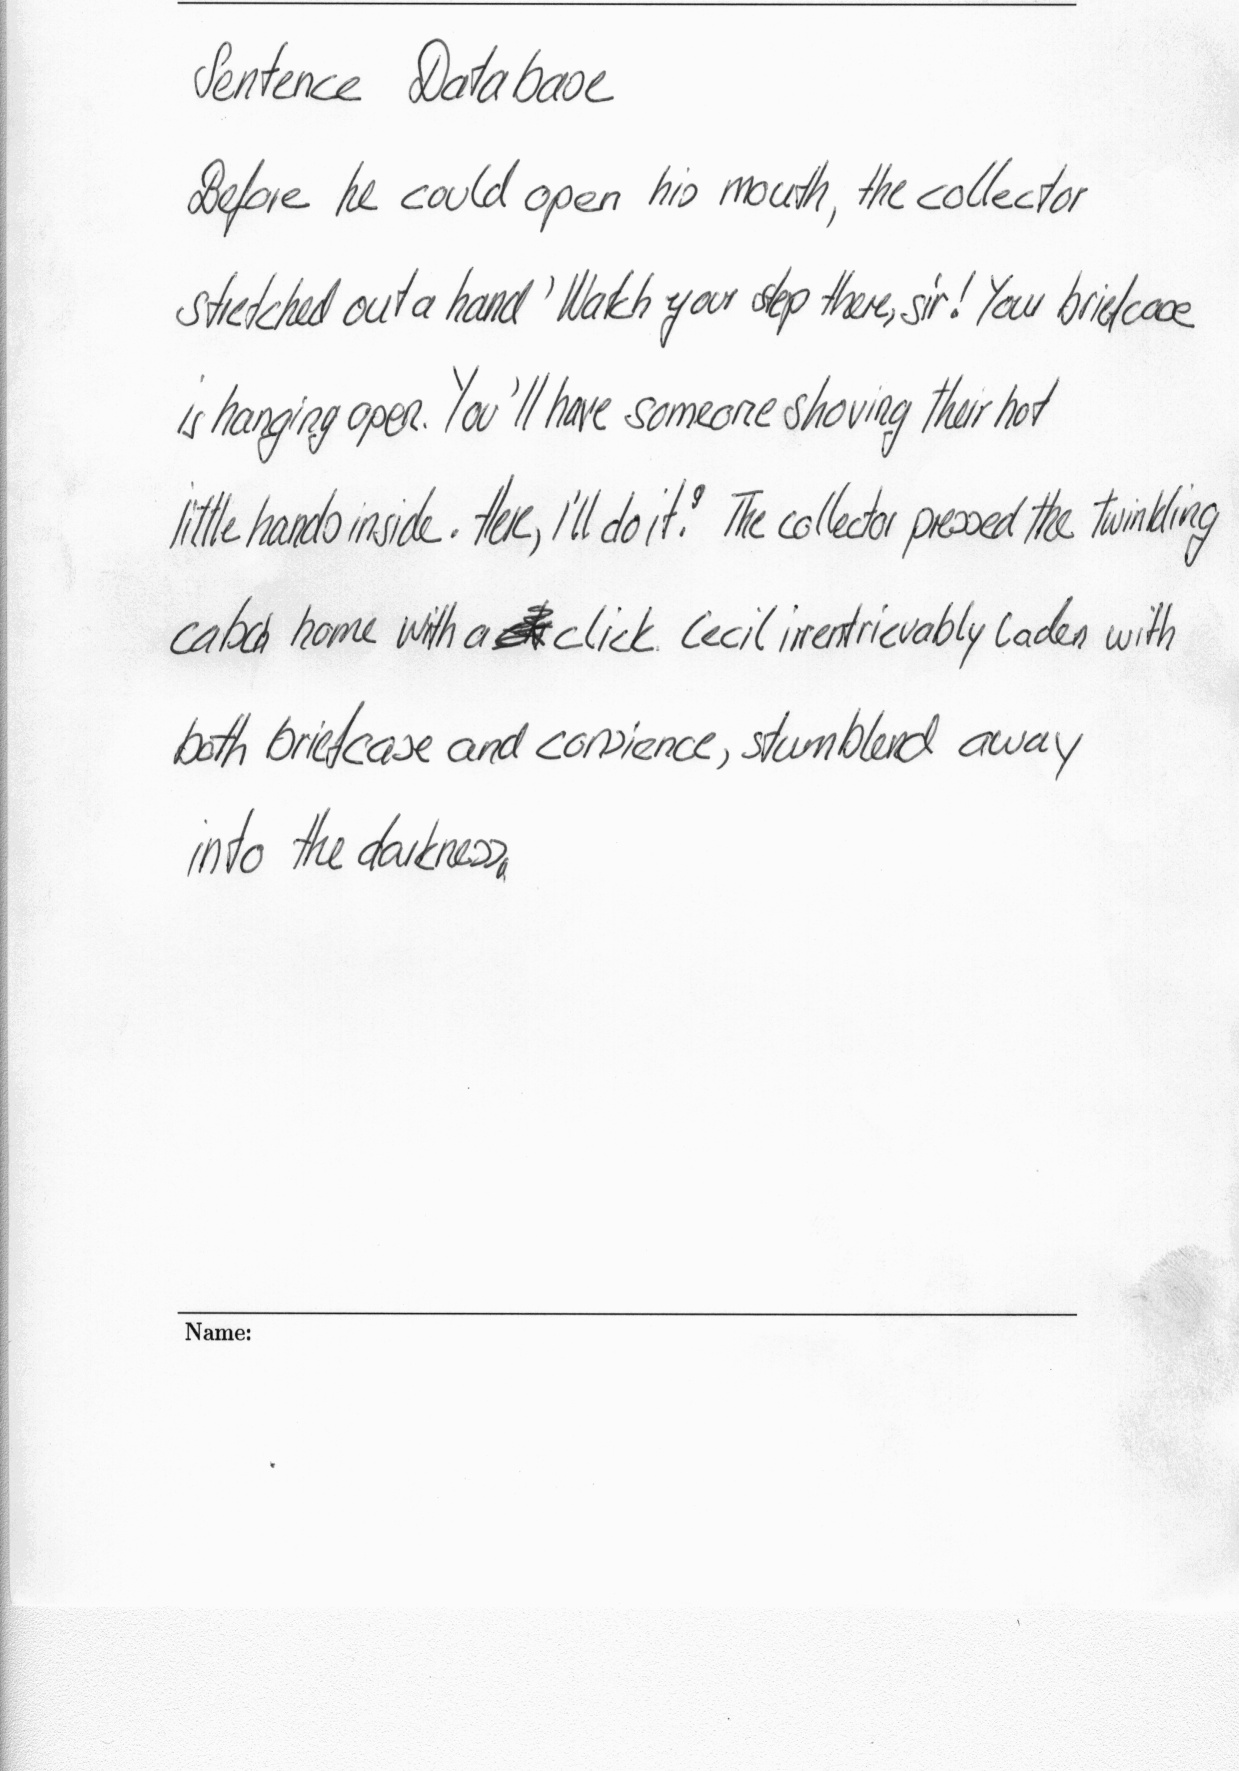 Sentence Database
Before he could open his mouth, the collector
stretched out a hand 'Watch your step there, sir! Your briefcase
is hanging open. You'll have someone shoving their hot
little hands inside. Here, I'll do it.' The collector pressed the twinkling
home with a click. Cecil irrentrievably laden with
both briefcase and consience, stumblend away
into the darkness.
Name: